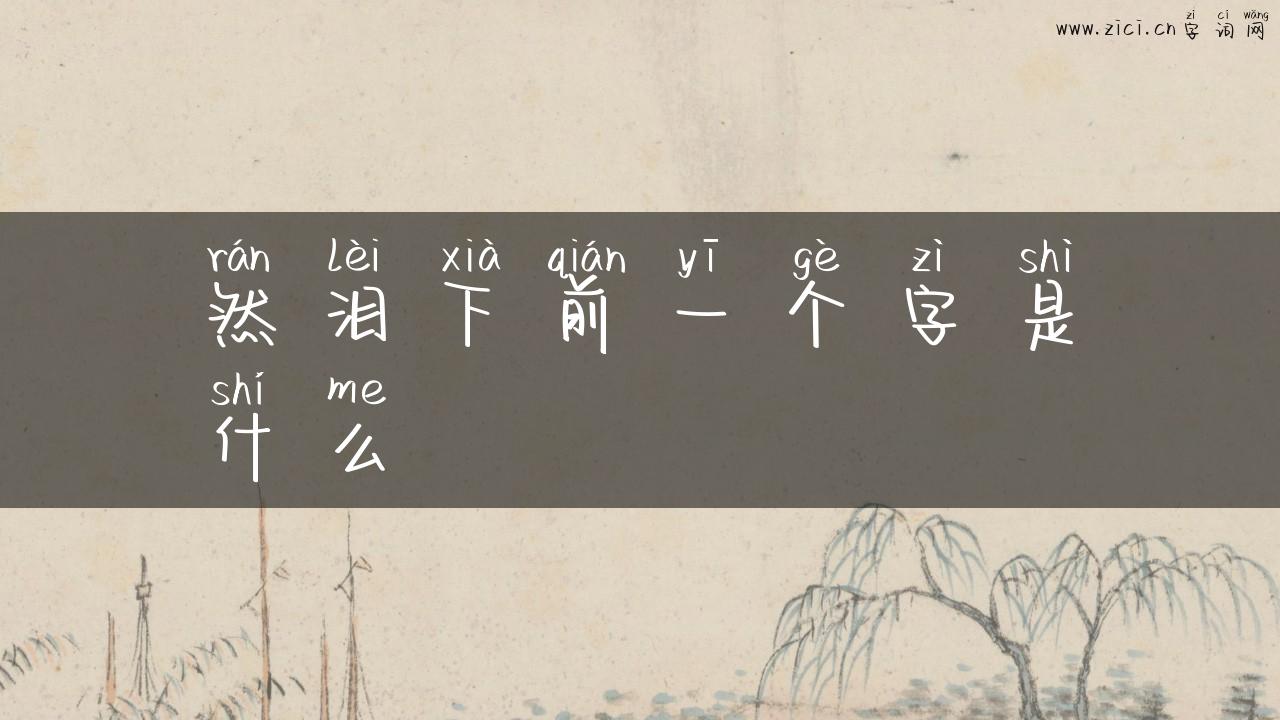 zì cí wǎng
www.zici.cn 字 词 网
rán lèi xià qián yī gè zì shì
然 泪 下 前 一 个 字 是
shí me
什 么